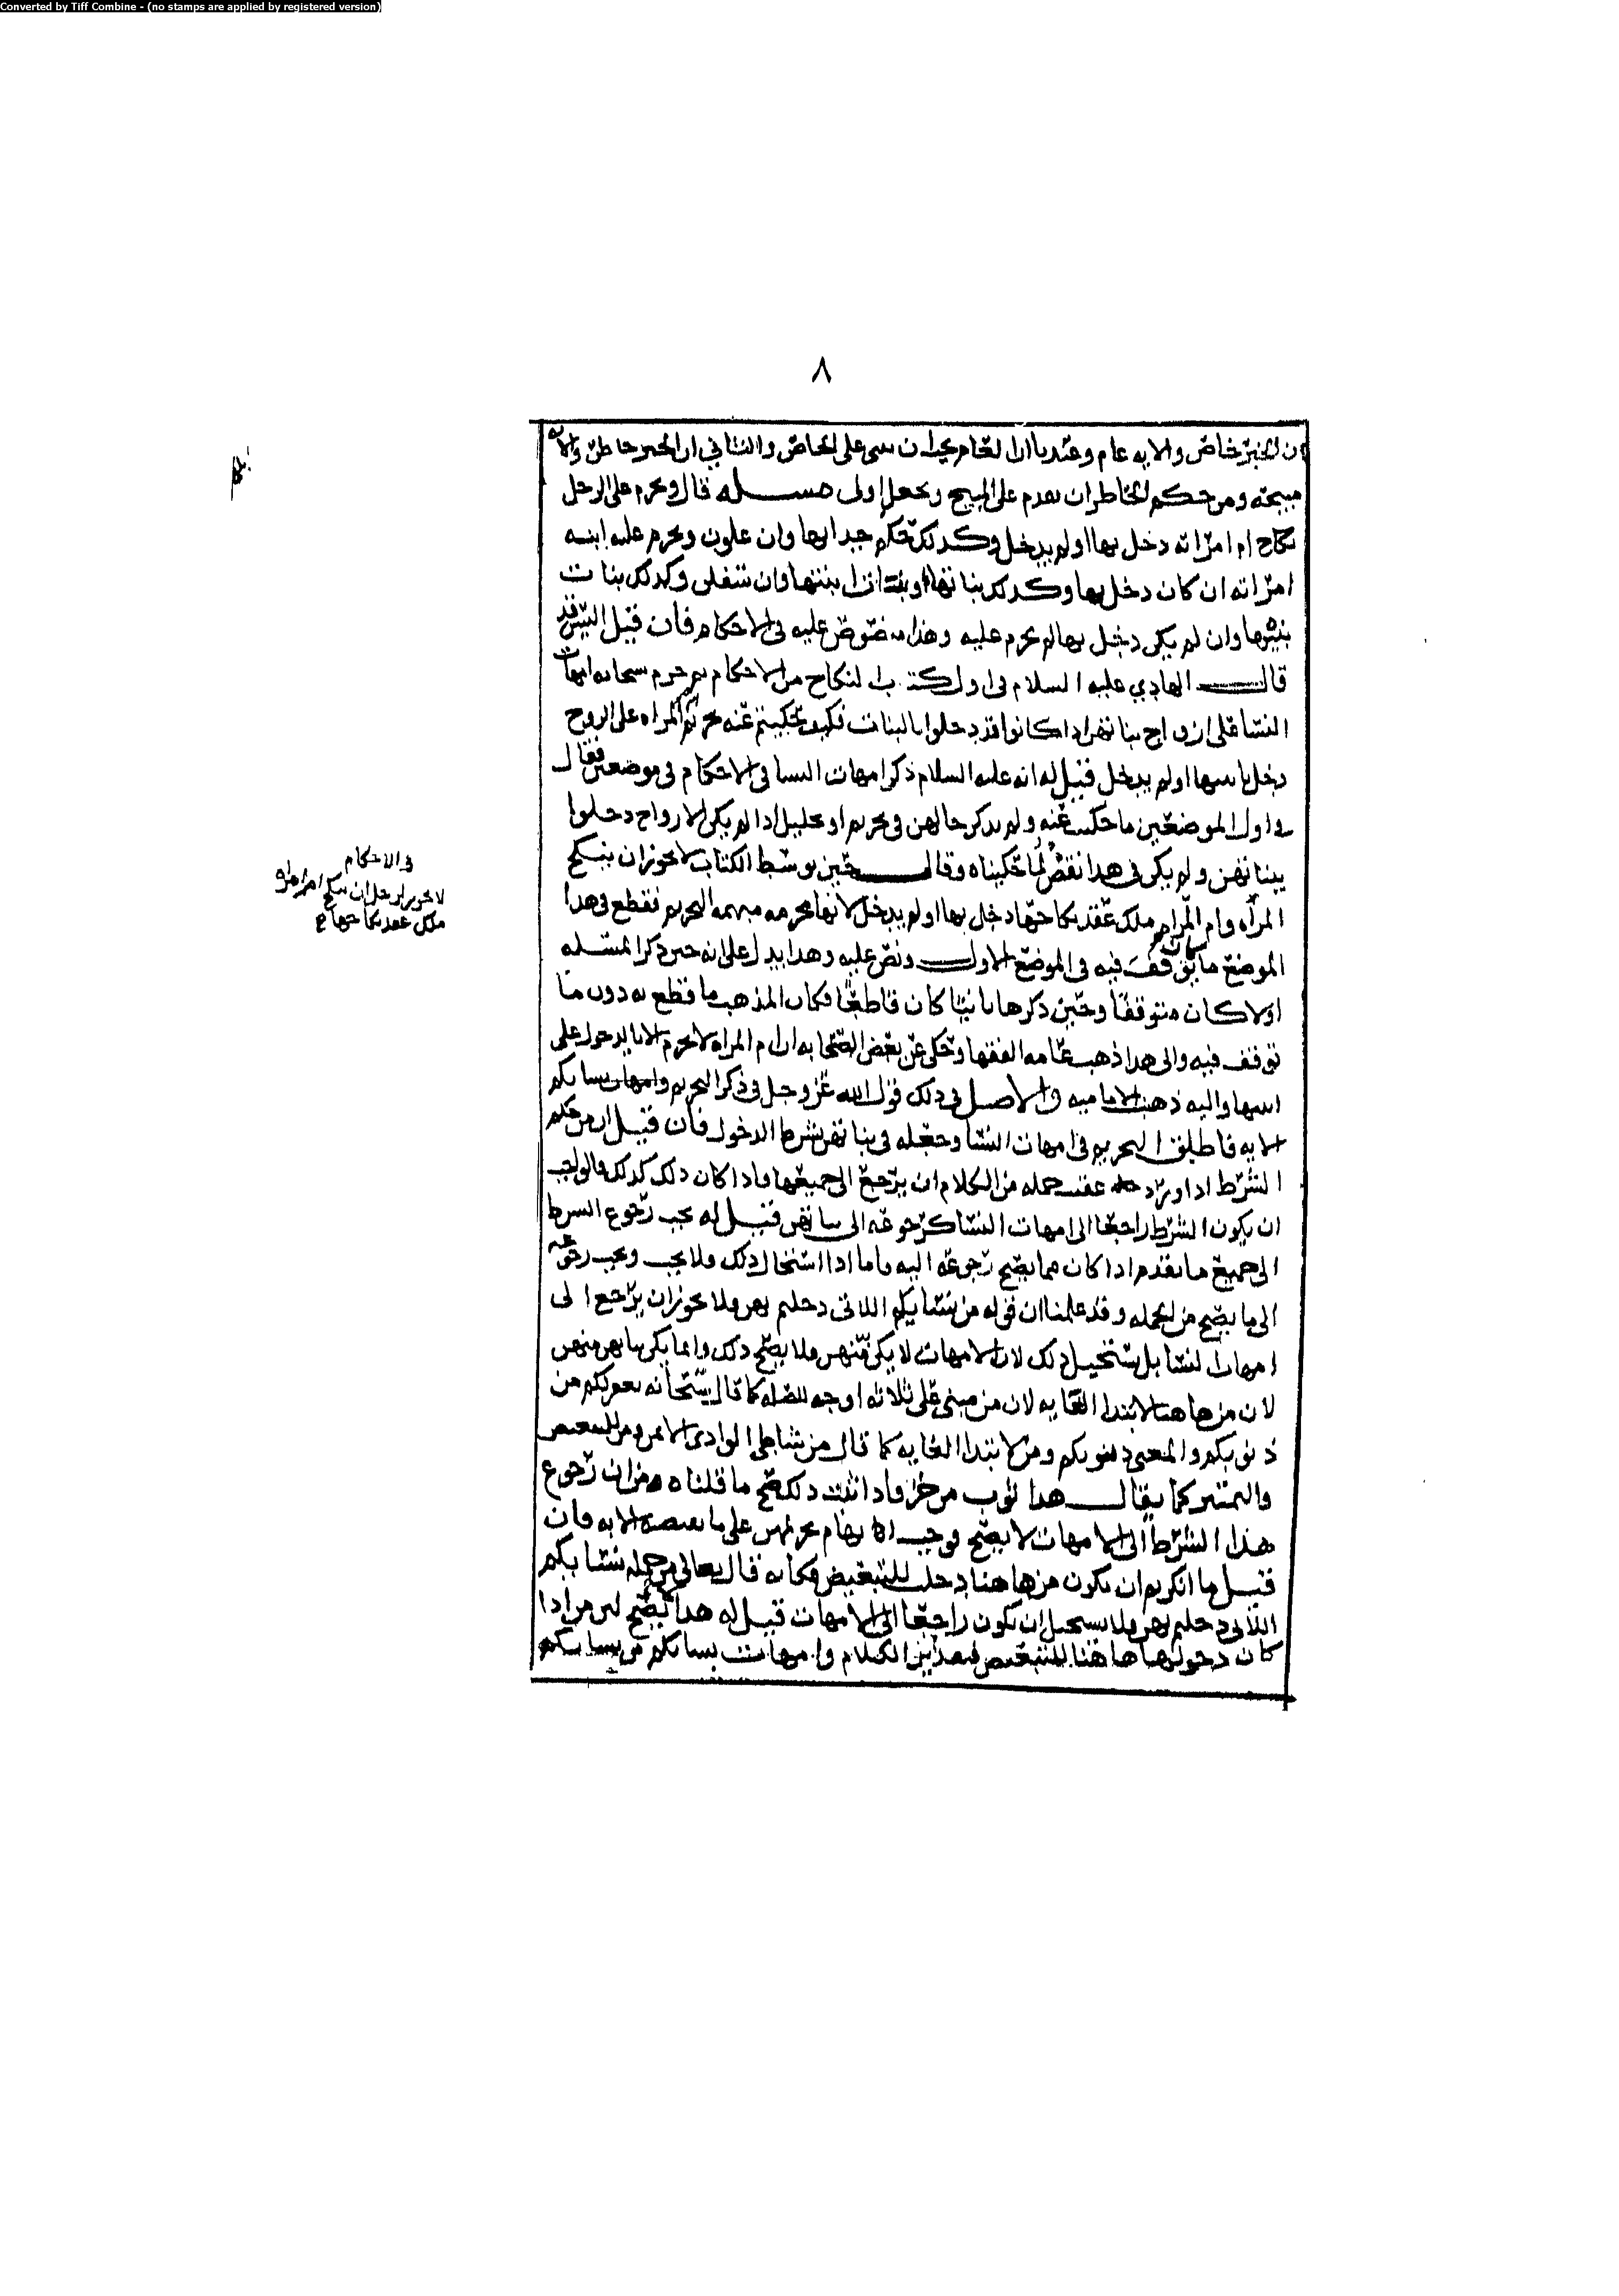 Converted by Tiff Combine - (no stamps are applied by registered version)
٨
ان الخبر خاص والايه عام وعندنا ان العام يجب ان يبنى على الخاص والثاني ان الخبر حاظر والايه
مبيحه ومن حكم الحاظر ان يقدم على المبيح ويجعل اولى مسله قال ويحرم على الرجل
نكاح ام امراته دخل بها او لم يدخل وكذلك حكم جداتها وان علون ويحرم عليه ابنه
امراته ان كان دخل بها وكذلك بناتها او بنات ابنتها وان سفلن وكذلك بنات
بنيها وان لم يكن دخل بها لم يحرم عليه وهذا منصوص عليه في الاحكام فان قيل اليس قد
قال الهادي عليه السلام في اول كتاب النكاح من الاحكام ثم حرم سبحانه امهات
النسا على ازواج بناتهن اذا كانوا قد دخلوا بالبنات فكيف حكيتم عنه تحريم المراه على الزوج
دخل بابنتها او لم يدخل قيل له انه عليه السلام ذكر امهات النسا في الاحكام في موضعين فقال
في اول الموضعين ما حكيت عنه ولم يذكر حالهن في تحريم او تحليل اذا لم يكن الازواج دخلوا
ببناتهن ولم يكن في هذا نقض لما حكيناه وقال حين توسط الكتاب لا يجوز ان ينكح
المراه وام المراه ملك عقد نكاحها دخل بها او لم يدخل لانها محرمه مبهمه التحريم فقطع في هذا
الموضع ما كان توقف فيه في الموضع الاول ونص عليه وهذا يدل على انه حين ذكر المسله
اولا كان متوقفا وحين ذكرها ثانيا كان قاطعا فكان المذهب ما قطع به دون ما
توقف فيه والى هذا ذهب عامه الفقها وحكي عن بعض الصحابه ان ام المراه لا تحرم الا بالدخول على
ابنتها واليه ذهب الاماميه والاصل في ذلك قول الله عز وجل في ذكر التحريم وامهات نسايكم
الايه فاطلق التحريم في امهات النسا وجعله في بناتهن بشرط الدخول فان قيل ان من حكم
الشرط اذا ورد عقب جمله من الكلام ان يرجع الى جميعها فاذا كان ذلك كذلك فالواجب
ان يكون الشرط راجعا الى امهات النسا كرجوعه الى بناتهن قيل له يجب رجوع الشرط
الى جميع ما تقدم اذا كان مما يصح رجوعه اليه فاما اذا استحال ذلك فلا يجب ويجب رجوعه
الى ما يصح من الجمله وقد علمنا ان قوله من نسايكم اللاتي دخلتم بهن فلا يجوز ان يرجع الى
امهات النسا بل يستحيل ذلك لان الامهات لا يكن منهن فلا يصح ذلك وانما يكن بناتهن منهن
لان من هاهنا لابتدا الغايه لان من مبني على ثلاثه اوجه للصله كما قال سبحانه يغفر لكم من
ذنوبكم والمعنى ذنوبكم ومن لابتدا الغايه كما قال من شاطي الوادي الايمن ومن للتبعيض
والتمييز كما يقال هذا ثوب من خز فاذا ثبت ذلك صح ما قلناه من ان رجوع
هذا الشرط الى الامهات لا يصح فوجب ابهام تحريمهن على ما يقتضيه الايه فان
قيل ما انكرتم ان تكون من هاهنا دخلت للتبعيض فكانه قال تعالى من جمله نسايكم
اللاتي دخلتم بهن فلا يستحيل ان تكون راجعا الى الامهات قيل له هذا لا يصح لان من اذا
كان دخولها هاهنا للتبعيض فتقدير الكلام وامهات نسايكم من نسايكم
في الاحكام
لا يجوز لرجل ان ينكح ام امراه
ملك عقد نكاحها ع